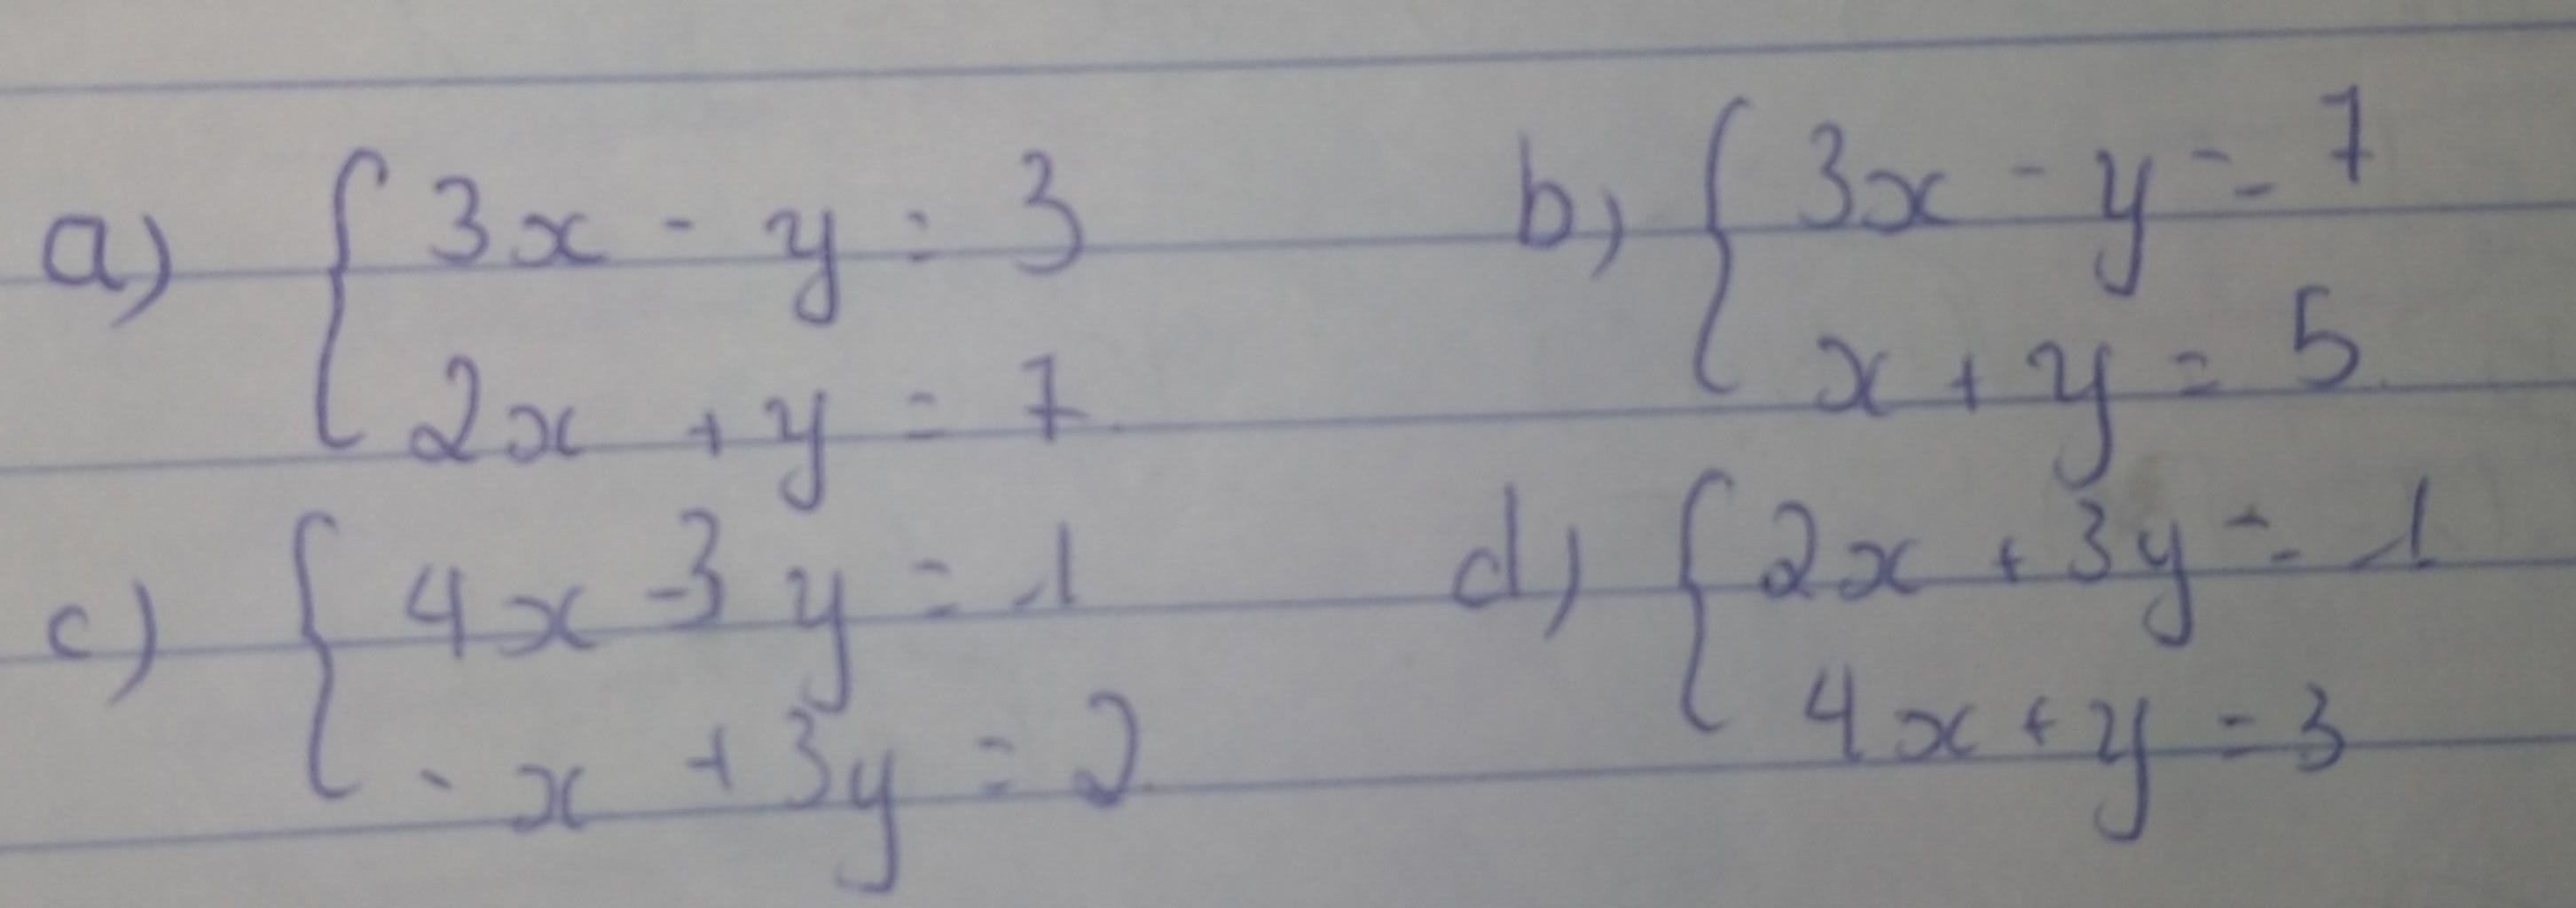 a) { 3x - y = 3
2x + y = 7
b) { 3x - y = 7
x + y = 5
c) { 4x - 3y = 1
- x + 3y = 2
d) { 2x + 3y = -1
4x + y = 3